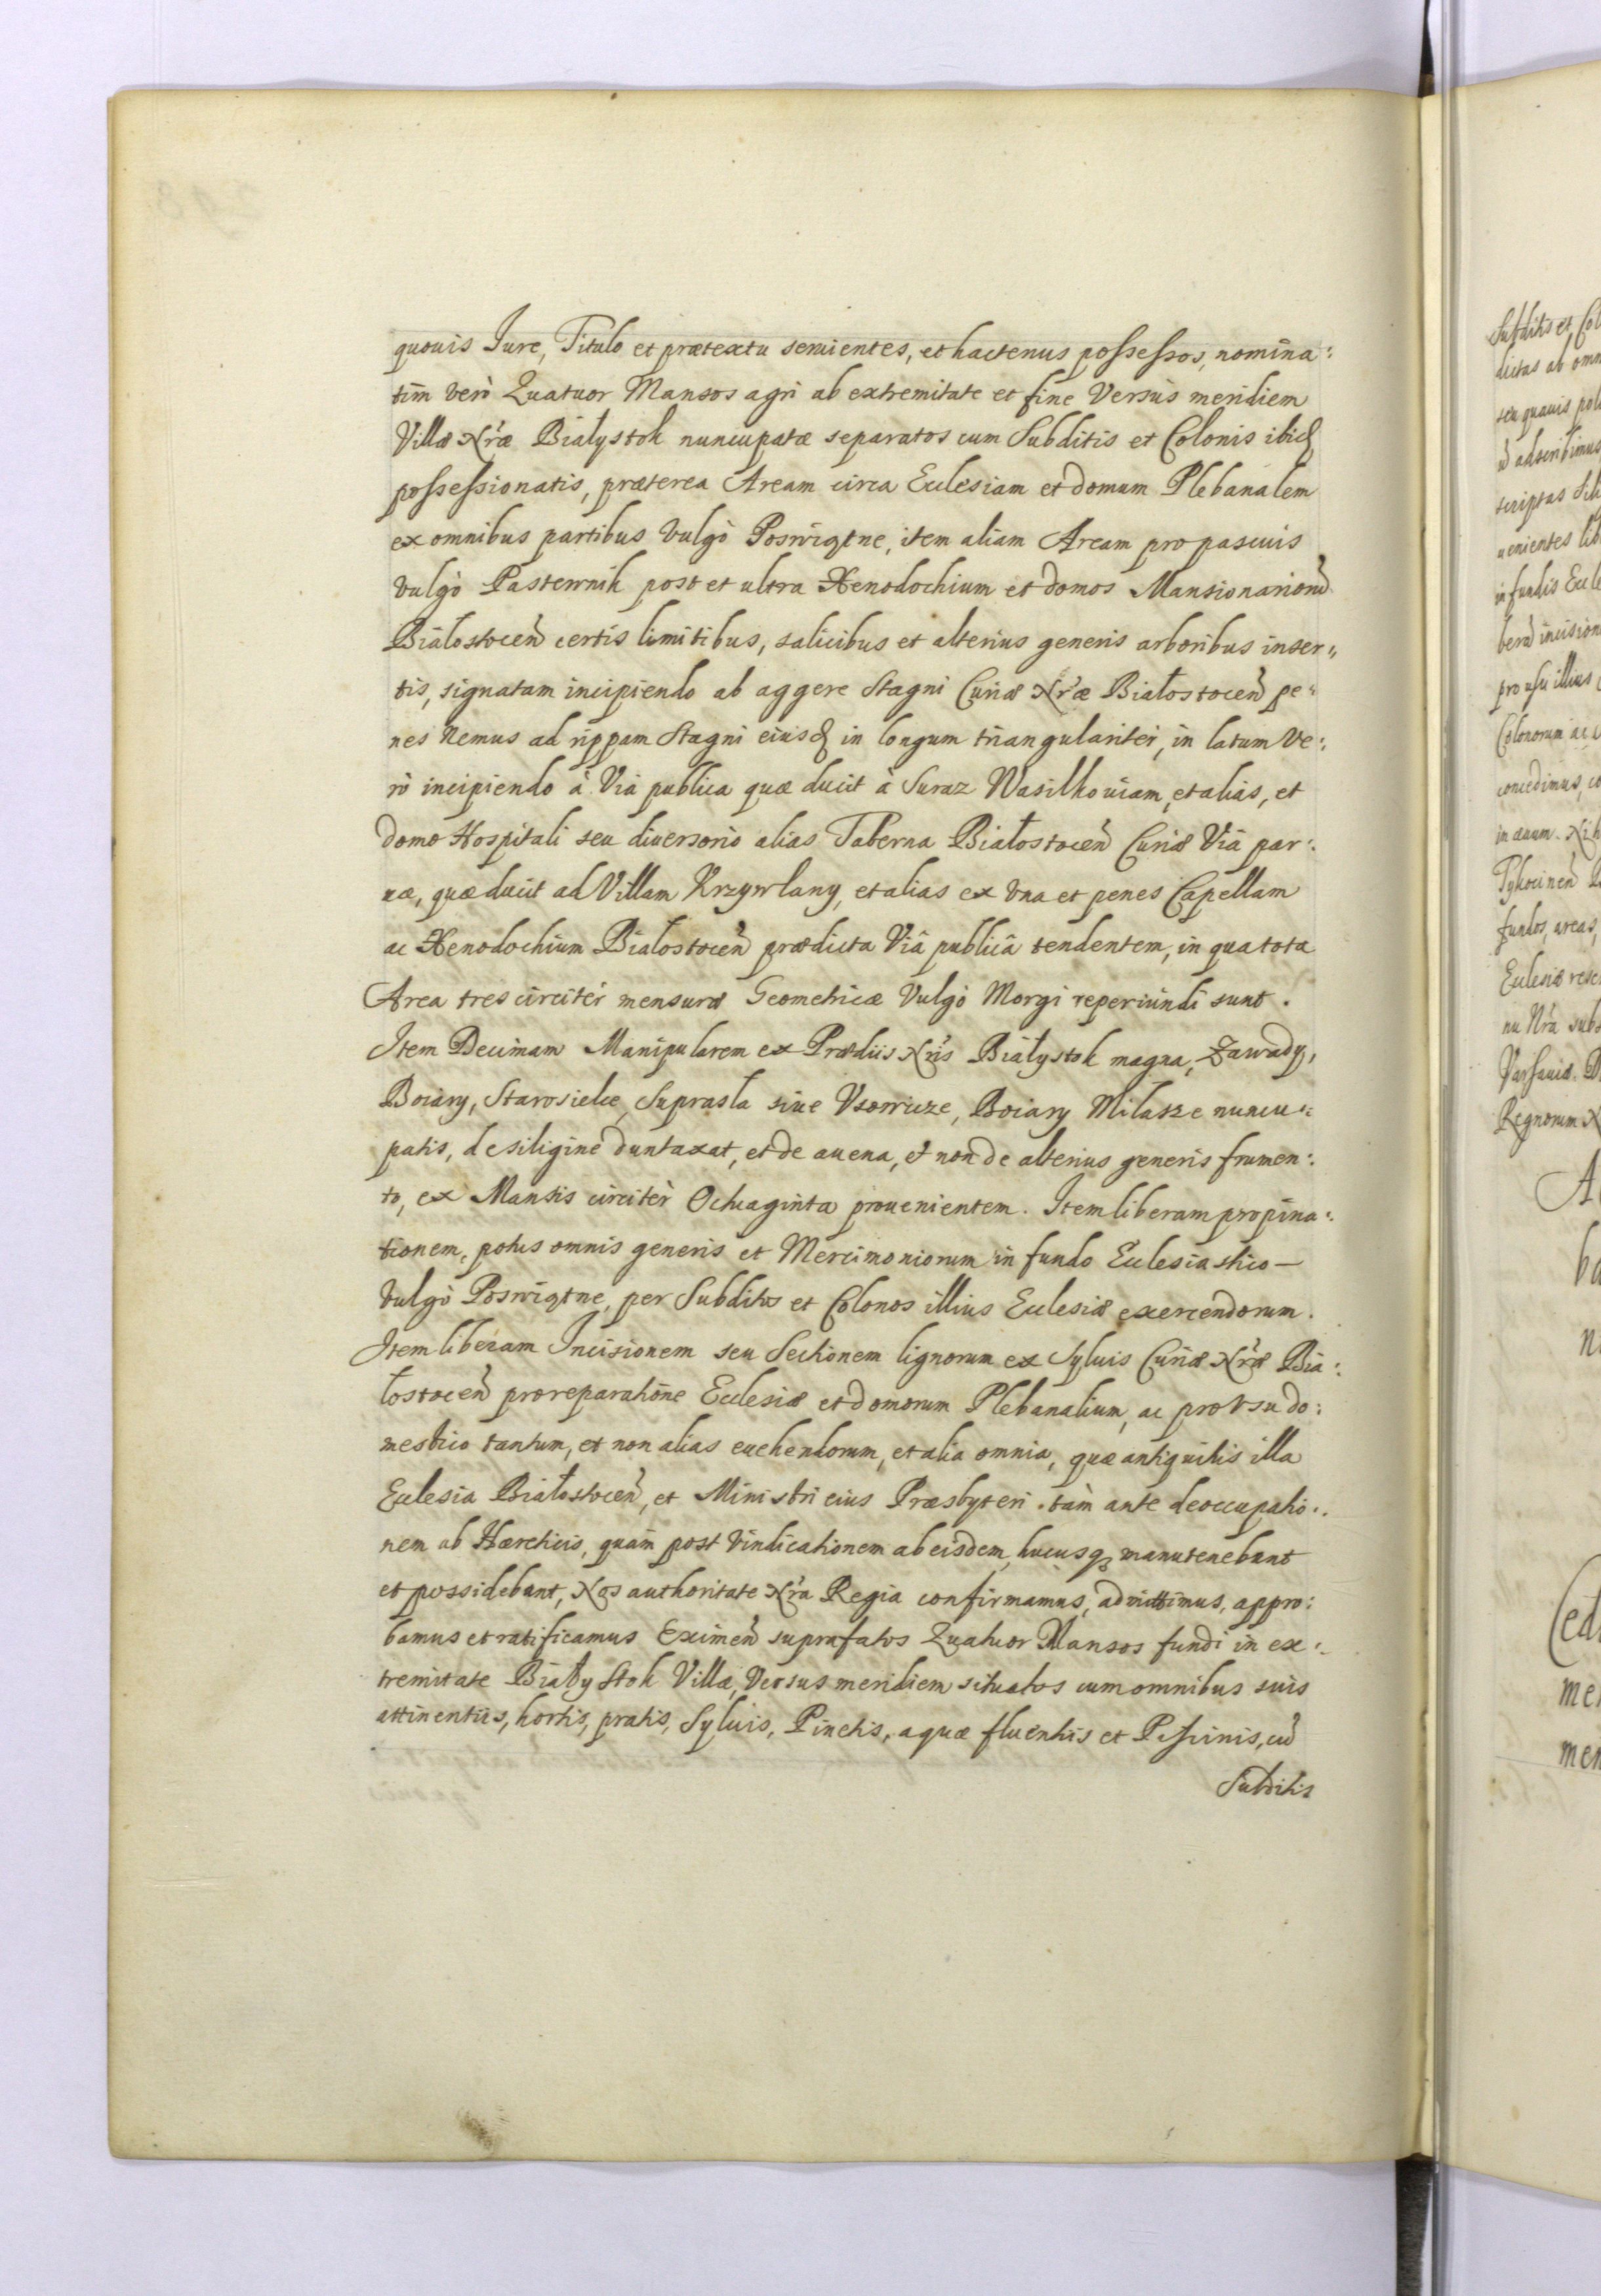 quouis Iure, Titulo et prætextu seruientes, et hactenus possessos, nomina:
tim verò Quatuor Mansos agri ab extremitate et fine Versùs meridiem
Villæ Nræ Białystok nuncupatæ separatos cum Subditis et Colonis ibid
possessionatis, præterea Aream circa Ecclesiam et domum Plebanalem
ex omnibus partibus vulgò Poswiątne, item aliam Aream pro pascuis
vulgò Pasternik post et ultra Xenodochium et domos Mansionariorũ
Białostocen certis limitibus, salicibus et alterius generis arboribus inser"
tis, signatam incipiendo ab aggere Stagni Curiæ Nræ Białostocen pe:
nes Nemus ad rippam Stagni eiusd in longum triangulariter, in latum ve:
rò incipiendo à Via publica quæ ducit à Suraz Wasilkouiam, et alias, et
domo Hospitali seu diuersorio alias Taberna Białostocen Curiæ Viâ par:
uæ, quæ ducit ad Villam Krzywlany, et alias ex vna et penes Capellam
ac Xenodochium Białostocen prædicta Viâ publicâ tendentem, in qua tota
Area tres circiter mensuræ Geometricæ Vulgò Morgi reperiundi sunt.
Item Decimam Manipularem ex Prædiis Nris Białystok magna, Zawady,
Boiary, Starosielce, Suprasla siue Vsowicze, Boiary Milasze nuncu:
patis, de siligine duntaxat, et de auena, et non de alterius generis frumen:
to, ex Mansis circitèr Octuaginta prouenientem. Item liberam propina:
tionem, potus omnis generis et Mercimoniorum in fundo Ecclesiastico -
vulgò Poswiątne, per Subditos et Colonos illius Ecclesiæ exercendorum.
Item liberam Incisionem seu Sectionem lignorum ex Syluis Curiæ Nræ Bia:
łostocen pro reparatione Ecclesiæ et domorum Plebanalium, ac pro vsu do:
mestico tantum, et non alias euehendorum, et alia omnia, quæ antiquitis illa
Ecclesia Białostocen, et Ministri eius Præsbyteri tàm ante deoccupatio:
nem ab Hæreticis, quàm post vindicationem ab eisdem, hucusq manutenebant
et possidebant, Nos authoritate Nra Regia confirmamus, admittimus, appro:
bamus et ratificamus Eximen suprafatos Quatuor Mansos fundi in ex:
tremitate Białystok Villæ, Versus meridiem situatos cum omnibus suis
attinentiis, hortis, pratis, Syluis, Pinetis, aquæ fluentiis et Piscinis, cũ
Subditis
Subditis et Col
seu quauis
cũ adscribimus
scriptas
uenientes lib
in fundis Eccle
berã incision
pro usu illius
Colonorum ac
concedimus, co
in æuum.
Tykocinen
fundos, areas,
Ecclesiæ
Varsauiæ. D
Regnorum N
A
ba
ni
Ced
me
men